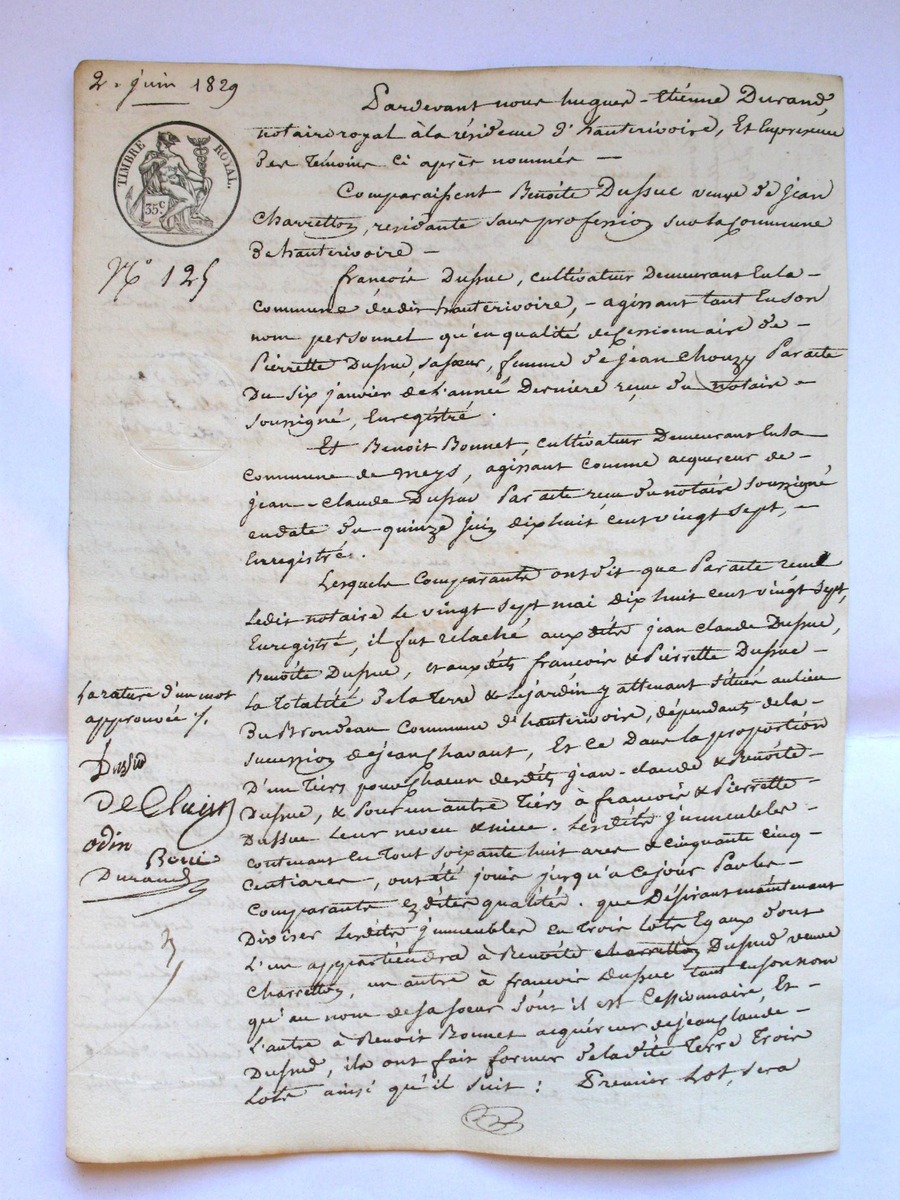 2. juin 1829
TIMBRE ROYAL.
35 c
N° 125
Pardevant nous hugues-Etienne Durand,
notaire royal à la résidence d'hauterivoire, Et En presence
des temoins ci après nommés —
Comparaissent Benoite Dussuc veuve de jean
Charretton, residante sans profession sur la Commune
d'hauterivoire —
françois Dussuc, cultivateur Demeurant En la -
Commune dudit hauterivoire, - agissant tant En son
nom personnel qu'en qualité de Cessionnaire de -
Pierrette Dussuc, sa sœur, femme de jean Chouzy Par acte
Du six janvier de l'année Derniere reçu du notaire -
soussigné, Enregistré.
Et Benoit Bonnet, cultivateur Demeurant En la
Commune de meys, agissant comme acquereur de -
jean-Claude Dussuc Par acte reçu du notaire soussigné
en date du quinze juin dix huit cent vingt sept, -
Enregistré.
Lesquels Comparants ont dit que Par acte reçu
Ledit notaire Le vingt sept mai dix huit cent vingt sept,
Enregistré, il fut relaché auxdits jean Claude Dussuc,
Benoite Dussuc, et auxdits francois & Pierrette Dussuc -
La totalité de la terre & Le jardin y attenant situés au lieu
Du Brondeau Commune d'hauterivoire, dépendants de la -
sucession de jean Chavant, Et ce Dans la proportion
D'un tiers pour Chacun desdits jean-Claude & Benoite -
Dussuc, & Pour un autre tiers à francois & Pierrette -
Dussuc Leur neveu & niece. Lesdits jmmeubles -
contenant En tout soixante huit ares & cinquante cinq -
Centiares, ont été jouis jusqu'a ce jour Par les -
Comparants ezdites qualités. que Désirant maintenant
Diviser Lesdits jmmeubles En trois lots Egaux dont
L'un appartiendra à Benoite charretton Dussuc veuve
Charretton, un autre à francois Dussuc tant en son nom
qu'au nom de sa soeur dont il est Cessionnaire, Et -
L'autre à Benoit Bonnet acquéreur de jean Claude -
Dussuc, ils ont fait former de la dite terre trois
Lots ainsi qu'il suit : Premier Lot, sera
La rature d'un mot
approuvée
odin
Durand